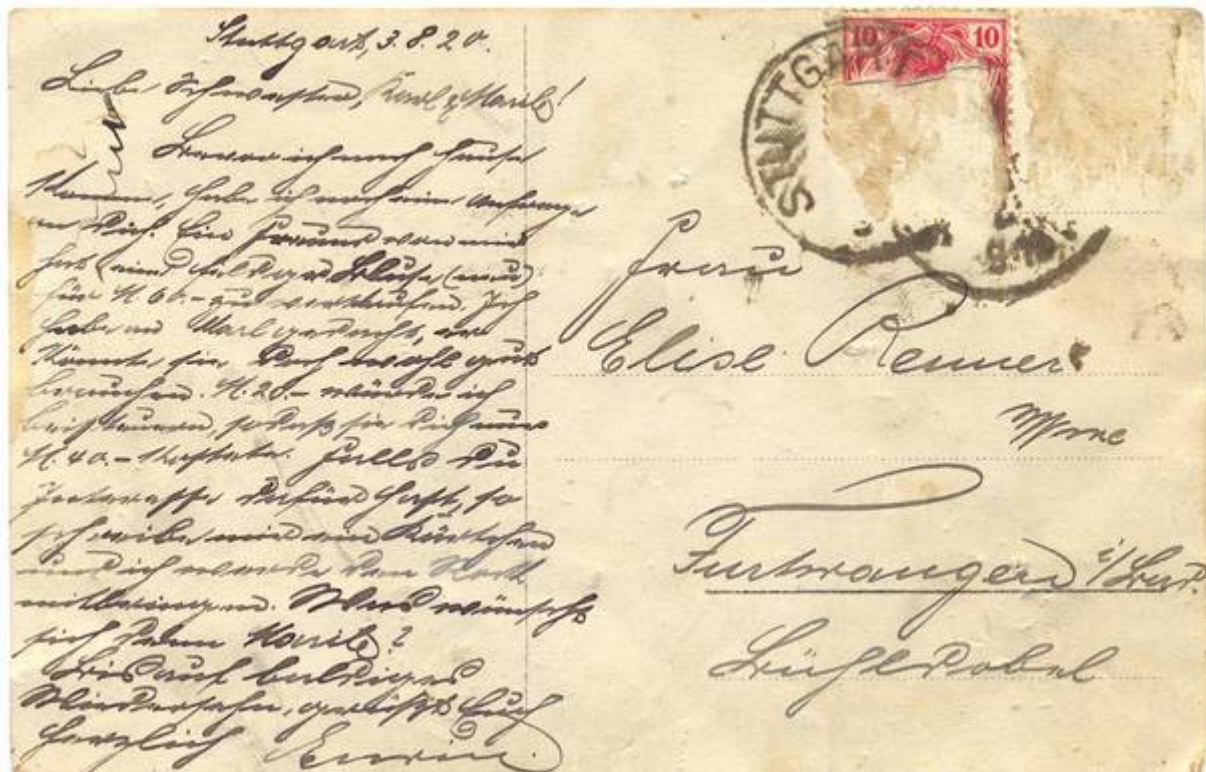 Stuttgart, 3.8.20.
Liebe Schwester, Karl & Marile!
Bevor ich nach Hause
komme, habe ich noch eine Anfrage
an Dich. Ein Freund von mir
hat eine feldgr. Bluse (neu)
für M. 60.- zu verkaufen. Ich
habe an Karl gedacht, er
könnte sie doch wohl gut
brauchen. M. 20.- würde ich
beisteuern, sodaß sie Dich nur
M. 40.- kostete. Falls Du
Interesse dafür hast, so
schreibe mir ein Kärtchen
und ich werde den Rock
mitbringen. Was wünscht
sich denn Marile?
Bis auf baldiges
Wiedersehn, grüßt Euch
herzlich Erwin.
10 10
STUTTGART
Frau
Elise Renner
Furtwangen i/Bad.